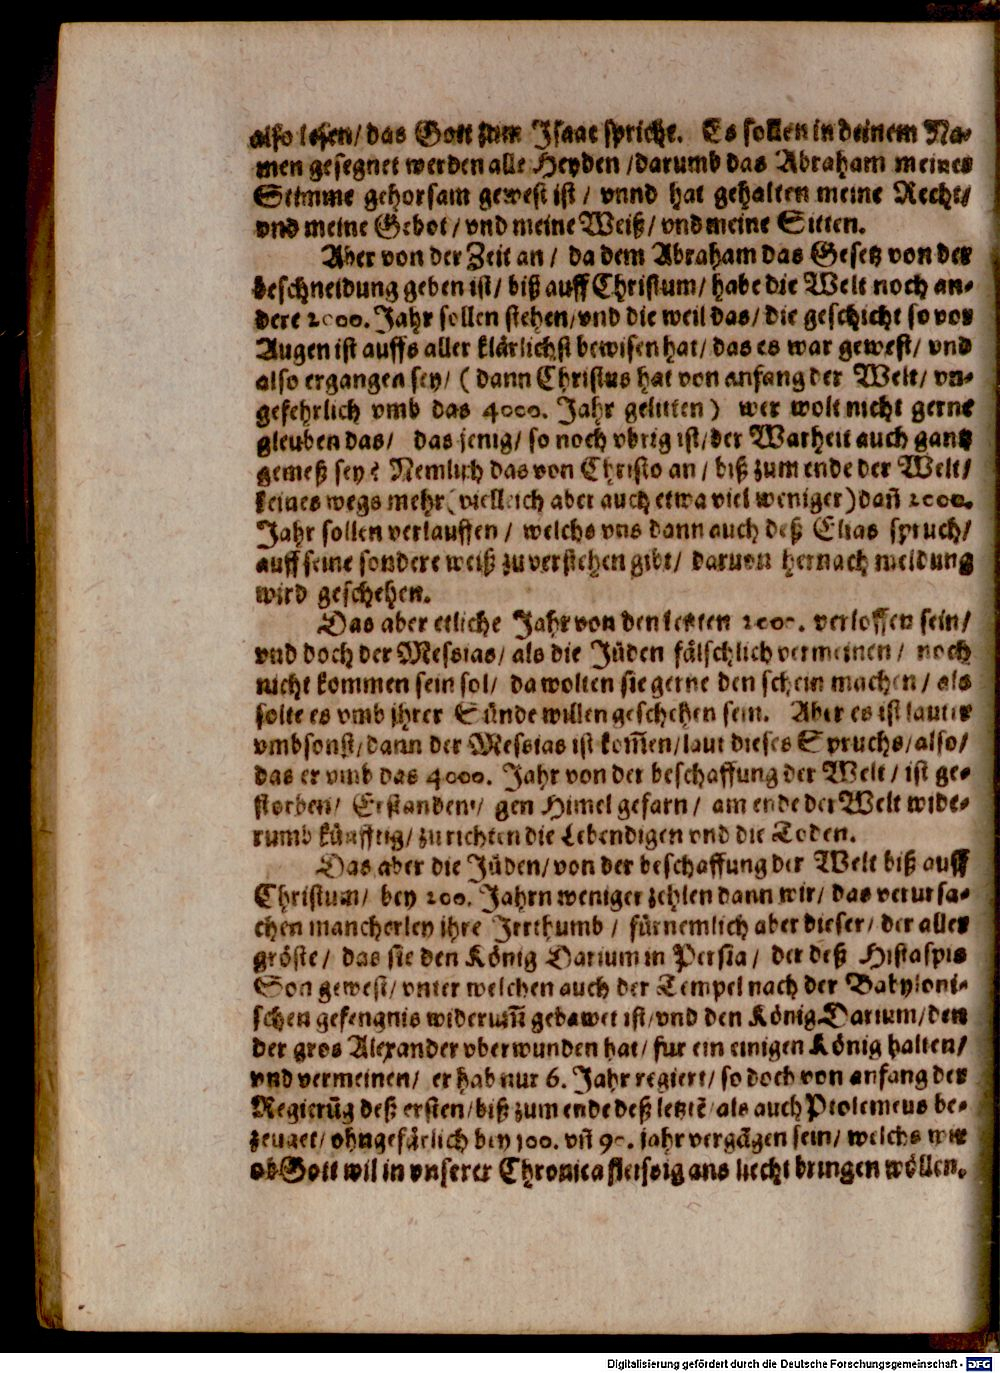 also lesen/ das Gott zum Isaac spricht. Es sollen in deinem Na-
men gesegnet werden alle Heyden /darumb das Abraham meines
Stimme gehorsam gewest ist / vnnd hat gehalten meine Recht/
vnd meine Gebot / vnd meine Weiß/ vnd meine Sitten.
Aber von der Zeit an / da dem Abraham das Gesetz von der
beschneidung geben ist/ biß auff Christum/ habe die Welt noch an-
dere 2000. Jahr sollen stehen/vnd die weil das/ die geschicht so vor
Augen ist auffs aller klärlichst bewisen hat/ das es war gewest/ vnd
also ergangen sey/ ( dann Christus hat von anfang der Welt/ vn-
gefehrlich vmb das 4000. Jahr gelitten) wer wolt nicht gerne
gleuben das/ das jenig/ so noch vbrig ist/der Warheit auch gantz
gemeß sey? Nemlich das von Christo an / biß zum ende der Welt/
keines wegs mehr (vielleich aber auch etwa viel weniger) dañ 2000.
Jahr sollen verlauffen / welchs vns dann auch deß Elias spruch/
auff seine sondere weiß zuverstehen gibt/ daruon hernach meldung
wird geschehen.
Das aber etliche Jahr von den letzten 2000. verloffen sein/
vnd doch der Messias/ als die Jüden fälschlich vermeinen / noch
nicht kommen sein sol/ da wolten sie gerne den schein machen / als
solte es vmb jhrer Sünde willen geschehen sein. Aber es ist lauter
vmbsonst/dann der Messias ist kom̃en/laut dieses Spruchs/also/
das er vmb das 4000. Jahr von der beschaffung der Welt / ist ge-
storben/ Erstanden/ gen Himel gefarn / am ende der Welt wide-
rumb künfftig/ zu richten die Lebendigen vnd die Toden.
Das aber die Jüden/ von der beschaffung der Welt biß auff
Christum/ bey 200. Jahrn weniger zehlen dann wir/ das verursa-
chen mancherley ihre Jrrthumb / fürnemlich aber dieser/ der aller
gröste/ das sie den König Darium in Persia/ der deß Histaspis
Son gewest/ vnter welchen auch der Tempel nach der Babyloni-
schen gefengnis widerum̃ gebawet ist/vnd den König Darium/den
der gros Alexander vberwunden hat/ fur ein einigen König halten/
vnd vermeinen/ er hab nur 6. Jahr regiert/ so doch von anfang der
Regierũg deß ersten/biß zum ende deß letztẽ/als auch Ptolemeus be-
zeuget/ ohngefärlich bey 100. vñ 90. jahr vergãgen sein/ welchs wir
ob Gott wil in vnserer Chronica fleissig ans liecht bringen wöllen.
Digitalisierung gefördert durch die Deutsche Forschungsgemeinschaft - DFG